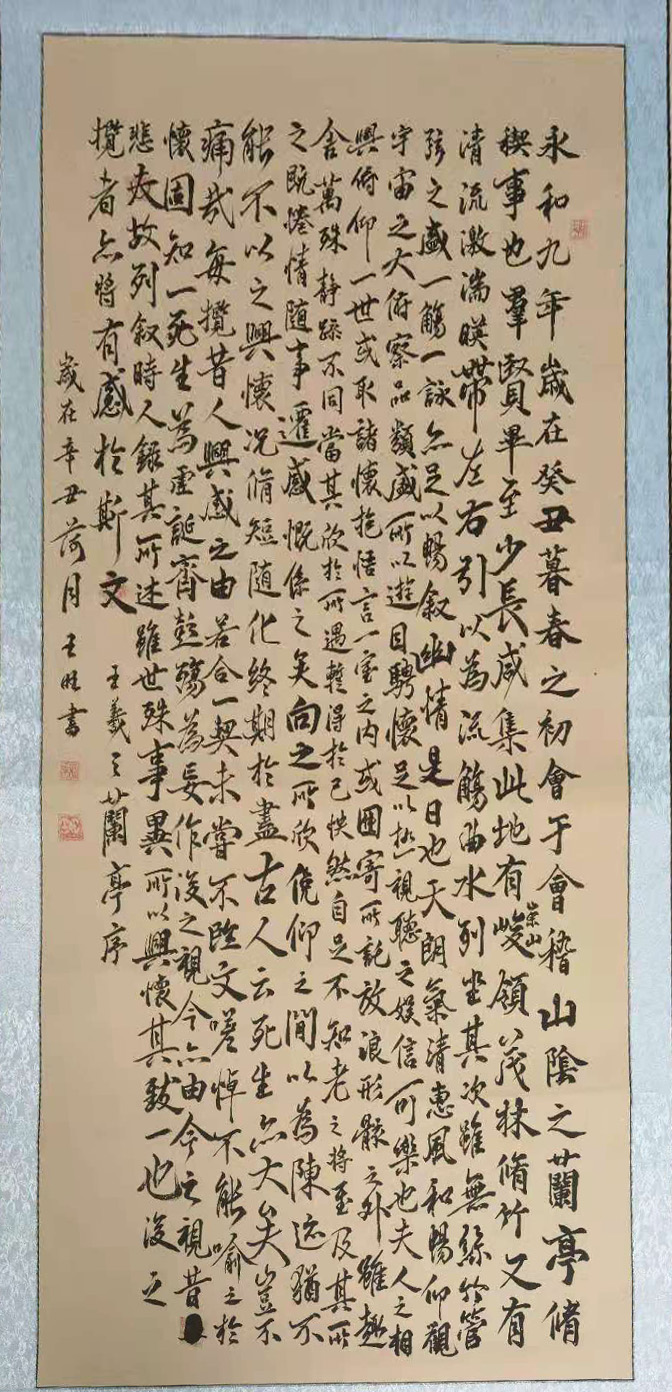 永和九年歲在癸丑暮春之初會于會稽山陰之蘭亭脩
稧事也羣賢畢至少長咸集此地有崇山峻領茂林脩竹又有
清流激湍暎帶左右引以為流觴曲水列坐其次雖無絲竹管
弦之盛一觴一詠亦足以暢叙幽情是日也天朗氣清惠風和暢仰觀
宇宙之大俯察品類盛所以遊目騁懷足以極視聽之娱信可樂也夫人之相
與俯仰一世或取諸懷抱悟言一室之内或因寄所託放浪形骸之外雖趣
舍萬殊靜躁不同當其欣於所遇蹔得於己怏然自足不知老之將至及其所
之既惓情隨事遷感慨係之矣向之所欣俛仰之間以為陳迹猶不
能不以之興懷况脩短隨化終期於盡古人云死生亦大矣豈不
痛哉每攬昔人興感之由若合一契未嘗不臨文嗟悼不能喻之於
懷固知一死生為虛誕齊彭殤為妄作後之視今亦由今之視昔
悲夫故列叙時人錄其所述雖世殊事異所以興懷其致一也後之
攬者亦將有感於斯文 王羲之蘭亭序
歲在辛丑荷月王書